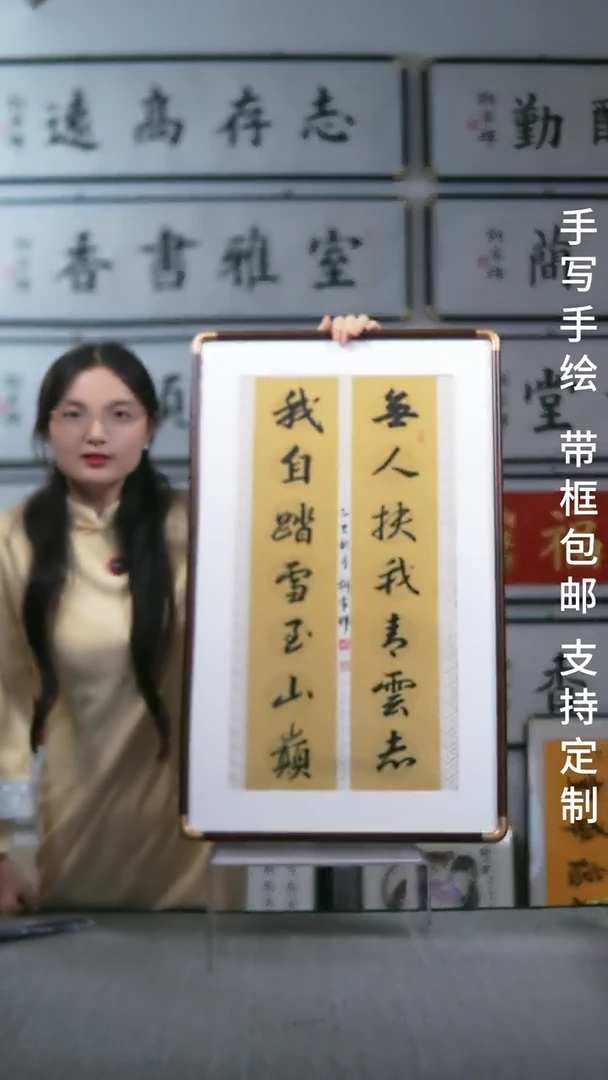 志存高遠
勤
室雅書香
堂
福
香
無人扶我青雲志
我自踏雪至山巔
手写手绘 带框包邮 支持定制